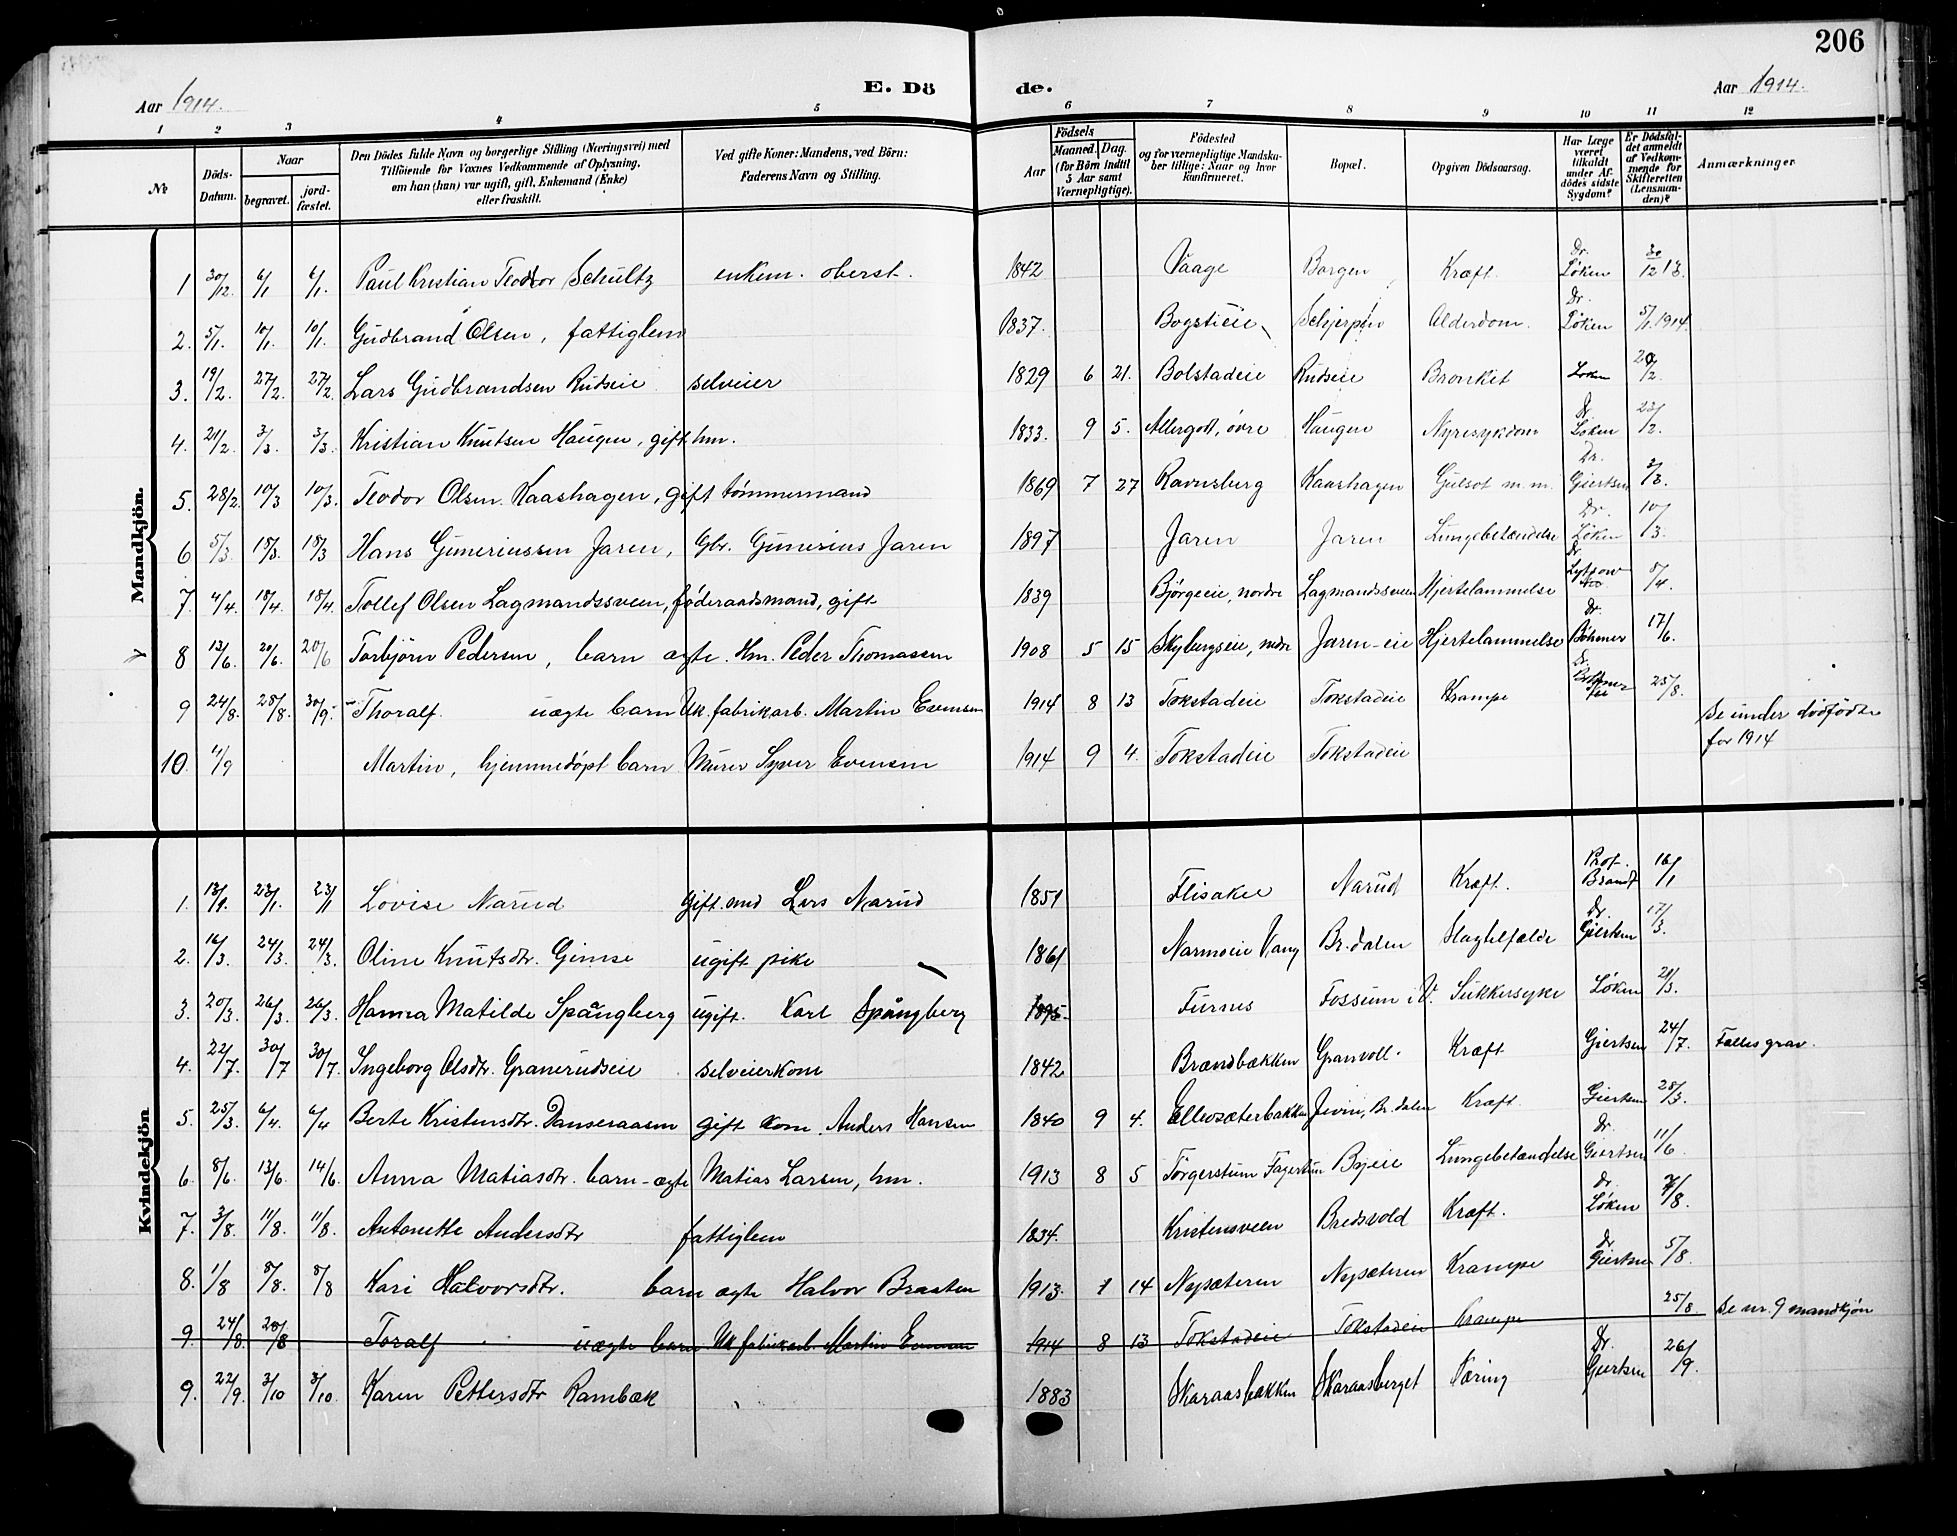 206
Aar 1914. E. Dö de. Aar 1914.
1 2 3 4 5 6 7 8 9 10 11 12
No
Döds-Datum.
Naar
begravet.
jord-fæstet.
Den Dödes fulde Navn og borgerlige Stilling (Næringsvei) med
Tilföiende for Voxnes Vedkommende af Oplysning,
om han (hun) var ugift, gift, Enkemand (Enke)
eller fraskilt.
Ved gifte Koner: Mandens, ved Börn:
Faderens Navn og Stilling.
Födsels
Aar
Maaned. Dag.
(for Börn indtil
5 Aar samt
Værnepligtige).
Födested
og for værnepligtige Mandska-
ber tillige: Naar og hvor
konfirmeret.
Bopæl.
Opgiven Dödsaarsag.
Har Læge
været
tilkaldt
under Af-
dödes sidste
Sygdom?
Er Dödsfal-
det anmeldt
af Vedkom-
mende for
Skifteretten
(Lensman-
den)?
Anmærkninger
Mandkjön.
1 30/12. 6/1 6/1. Paul Kristian Teodor Schultz enkem. oberst. 1842 Vaage Borgen Kræft. Dr. Løken 30/12 13.
2. 5/1. 10/1. 10/1. Gudbrand Olsen, fattiglem 1837. Bogstieie Alderdom. Dr. Løken 5/1. 1914.
3. 19/2. 27/2. 27/2. Lars Gudbrandsen Rudseie selveier 1829 6 21. Bolstadeie Rudseie Bronkit Løken 20/2.
4. 21/2. 3/3. 3/3. Kristian Knutsen Haugen, gift hm. 1833. 9 5. Allergott, øvre Haugen Nyresykdom Dr. Løken 23/2.
5. 28/2. 10/3 10/3. Teodor Olsen Kaashagen, gift tømmermand 1869 7 27 Ravnsberg Kaashagen Gulsot m.m. Dr. Giertsen 3/3.
6 5/3. 18/3. 18/3 Hans Guneriussen Jaren, Gbr. Gunerius Jaren 1897 Jaren Jaren Lungebetændelse Dr. Løken 10/3.
7. 4/4. 18/4. 18/4. Tollef Olsen Lagmandssveen, føderaadsmand, gift 1839 Bjørgeeie, nordre Lagmandssveen Hjertelammelse Dr. 8/4.
8 13/6. 20/6. 20/6 Torbjørn Pedersen, barn ægte. Hm. Peder Thomassen 1908 5 15 Skybergseie, nedre Jaren-eie Hjertelammelse Dr. Bøhmer 17/6.
9 24/8. 28/8. 30/9. Thoralf. uægte barn Uk. fabrikarb. Martin Evensen 1914 8 13 Tokstadeie Tokstadeie Krampe Dr. 25/8.
10. 4/9 Martin, hjemmedøpt barn Murer Syver Evensen 1914 9 4. Tokstadeie Tokstadeie Se under dødfødte
for 1914
Kvindekjön
1. 13/1. 23/1. 23/1 Lovise Narud Gift med Lars Narud 1851 Flisaker Narud Kræft. Prof. Brandt 16/1
2. 16/3. 24/3. 24/3. Oline Knutsdtr. Gimse ugift pike 1861 Narmoeie Vang Br.dalen Slagtilfælde Dr. Giertsen 17/3.
3. 20/3. 26/3 26/3. Hanna Matilde Spångberg ugift. Karl Spångberg 1895 Furnes Fossum i V. Sukkersyke Løken 21/3.
4. 22/7. 30/7 30/7. Ingeborg Olsdtr. Granerudseie selveierkone 1842 Brændbækken Granvoll. Kræft Giertsen 24/7. Fælles grav.
5. 25/3. 6/4. 6/4 Berte Kristensdtr. Danseraasen gift kone. Anders Hansen 1840 9 4. Ellevsæterbakken Jevin, Br.dalen Kræft. Giertsen 28/3.
6. 8/6. 13/6. 14/6. Anna Matiasdtr. barn-ægte Matias Larsen, hm. 1913 8 5 Torgerstuen Fagertun Byeie Lungebetændelse Dr. Giertsen 11/6
7. 3/8. 11/8. 11/8. Antonette Andersdtr fattiglem 1834. Kristensveen Bredsvold Kræft. Dr. Løken 7/8.
8. 1/8 8/8. 8/8 Kari Halvorsdtr. barn ægte Halvor Braaten 1913. 1 14 Nysæteren Nysæteren Krampe Dr. Giertsen 5/8.
9. 24/8. 28/8 Toralf uægte barn Uk fabrikarb. Martin Evensen 1914 8 13 Tokstadeie Tokstadeie Krampe 25/8 Se nr. 9 mandkjøn
9. 22/9. 3/10 3/10. Karen Pettersdtr Rambæk 1883 Skaraasbakken Skaraasberget Tæring Dr. Giertsen 26/9.